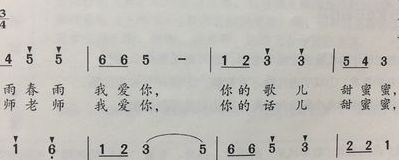 3/4
4 5 5 | 6 6 5 - | 1 2 3 3 | 5 4 3
雨 春 雨 我 爱 你, 你 的 歌 儿 甜 蜜 蜜,
师 老 师 我 爱 你, 你 的 话 儿 甜 蜜 蜜,
1 6 | 1 2 3 5 | 6 6 5 3 | 2 2 1